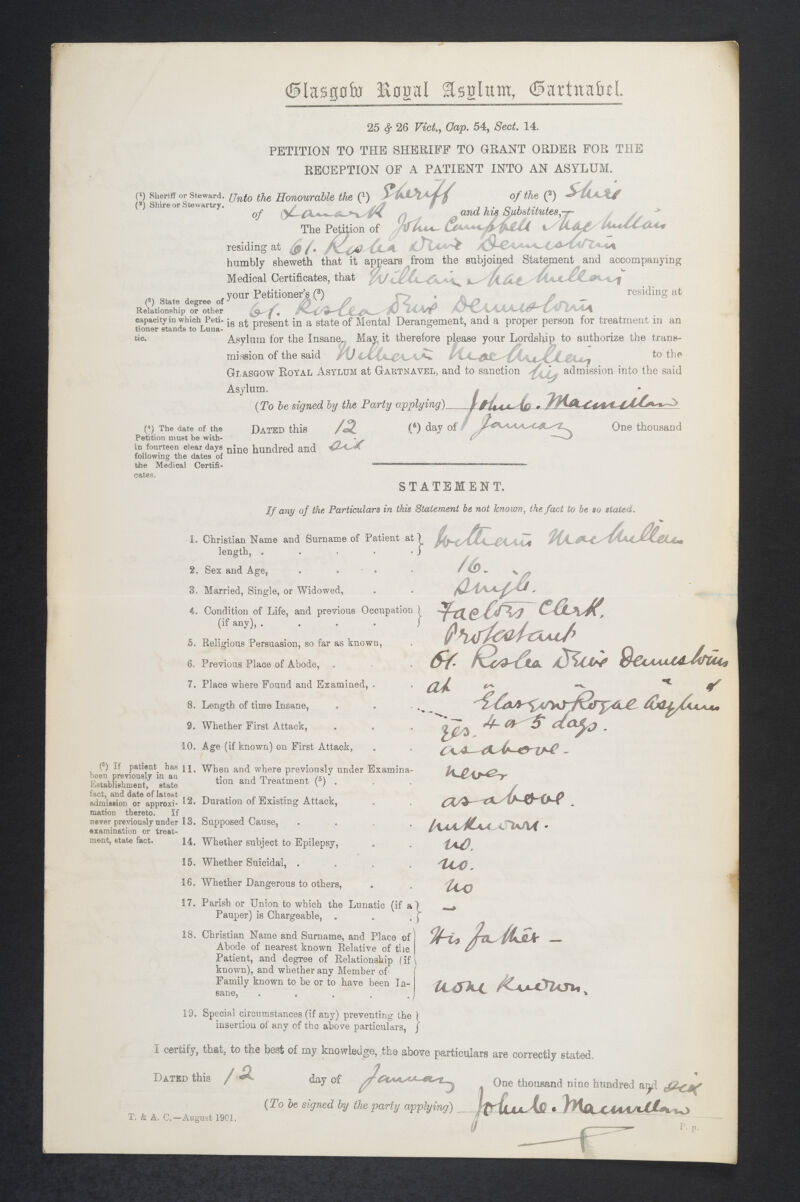 Glasgow Royal Asylum, Gartnavel.
25 & 26 Vict., Cap. 54, Sect. 14.
PETITION TO THE SHERIFF TO GRANT ORDER FOR THE
RECEPTION OF A PATIENT INTO AN ASYLUM.
(1) Sheriff or Steward.
(2) Shire or Stewartry.
Unto the Honourable the (1) Sheriff of the (2) Shire
of Lanark and his Substitutes,—
The Petition of John Campbell MacMillan
residing at 61. Roslea Drive Dennistoun
humbly sheweth that it appears from the subjoined Statement and accompanying
Medical Certificates, that William MacMillan
(3) State degree of
Relationship or other
capacity in which Peti-
tioner stands to Luna-
tic.
your Petitioner's (3) residing at
61. Roslea Drive Dennistoun
is at present in a state of Mental Derangement, and a proper person for treatment in an
Asylum for the Insane. May it therefore please your Lordship to authorize the trans-
mission of the said William MacMillan to the
GLASGOW ROYAL ASYLUM at GARTNAVEL, and to sanction his admission into the said
Asylum.
(To be signed by the Party applying) John C. Macmillan
(4) The date of the
Petition must be with-
in fourteen clear days
following the dates of
the Medical Certifi-
cates.
DATED this 12 (4) day of January One thousand
nine hundred and six
STATEMENT.
If any of the Particulars in this Statement be not known, the fact to be so stated.
1. Christian Name and Surname of Patient at length, . . . . . William MacMillan
2. Sex and Age, . . . . 16.
3. Married, Single, or Widowed, . . single.
4. Condition of Life, and previous Occupation (if any), . . . . Factors Clerk.
5. Religious Persuasion, so far as known, . Protestant
6. Previous Place of Abode, . . 61. Roslea Drive Dennistoun
7. Place where Found and Examined, . . at " " "
8. Length of time Insane, . . . Glasgow Royal Asylum
4 or 5 days.
9. Whether First Attack, . . . yes.
10. Age (if known) on First Attack, . . as above.
(5) If patient has
been previously in an
Establishment, state
fact, and date of latest
admission or approxi-
mation thereto. If
never previously under
examination or treat-
ment, state fact.
11. When and where previously under Examina-
tion and Treatment (5) . . . never
12. Duration of Existing Attack, . . as above.
13. Supposed Cause, . . . . unknown.
14. Whether subject to Epilepsy, . . no.
15. Whether Suicidal, . . . . no.
16. Whether Dangerous to others, . . no
17. Parish or Union to which the Lunatic (if a
Pauper) is Chargeable, . . . –
18. Christian Name and Surname, and Place of
Abode of nearest known Relative of the
Patient, and degree of Relationship (if
known), and whether any Member of
Family known to be or to have been In-
sane, . . . . .
His father –
none known.
19. Special circumstances (if any) preventing the
insertion of any of the above particulars,
I certify, that, to the best of my knowledge, the above particulars are correctly stated.
DATED this 12 day of January One thousand nine hundred and six
(To be signed by the party applying) John C. Macmillan
T. & A. C.—August 1901.
P. p.